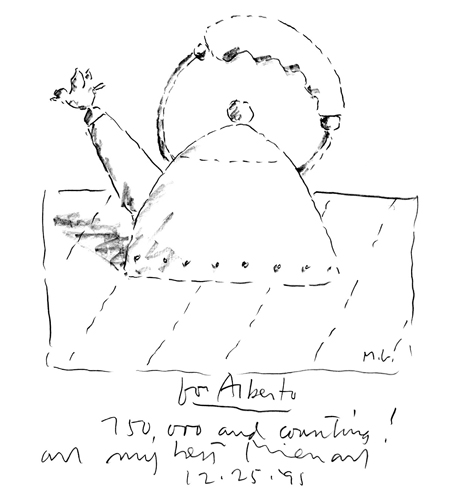 M.G.
for Alberto
750,000 and counting!
all my best Michael
12.25.95